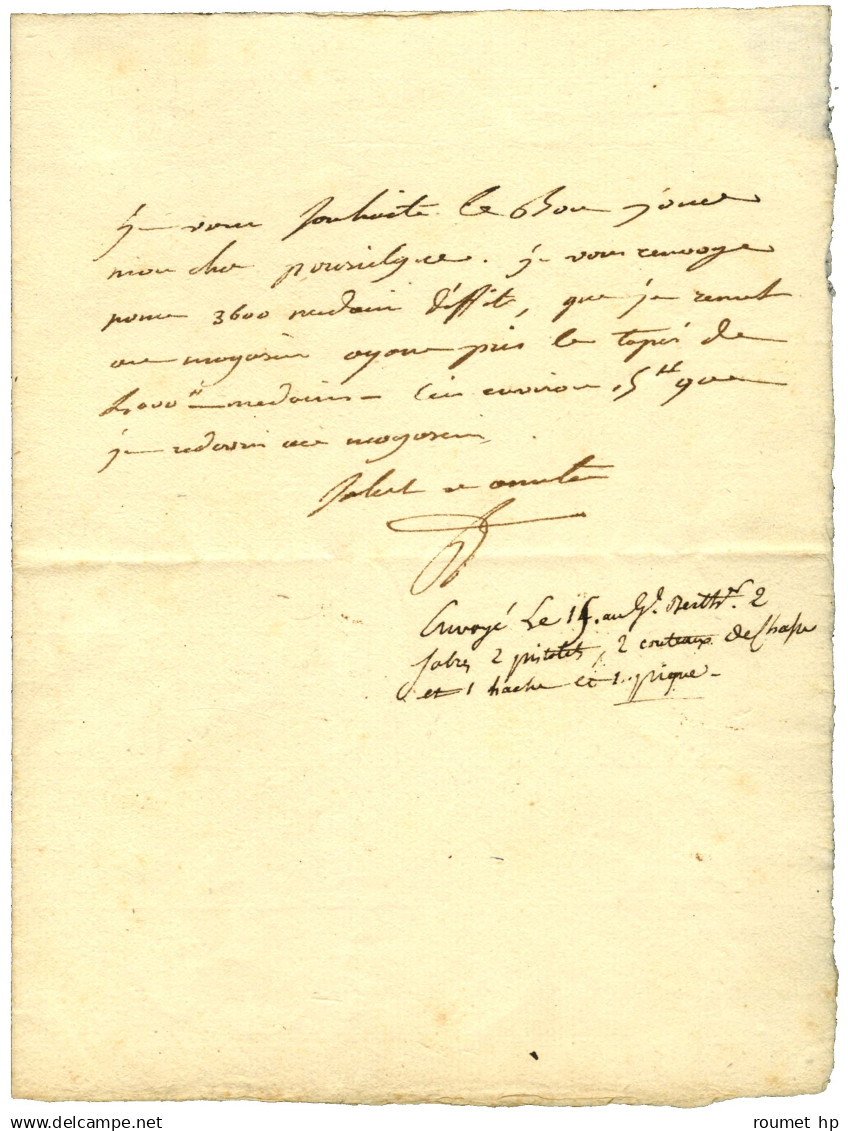 je vous souhaite le bon jour
mon cher poussielgue. je vous renvoye
pour 3600 medain d'effit, que je remet
au magasin ayant pris le tapis de
4000 medains c'en environ 15# que
je redevrai au magasin
salut et amitié
Envoyé Le 15. au Gl. Berth.r 2
sabres 2 pistolets, 2 couteaux de Chasse
et 1 hache et 1. pique -
roumet hp